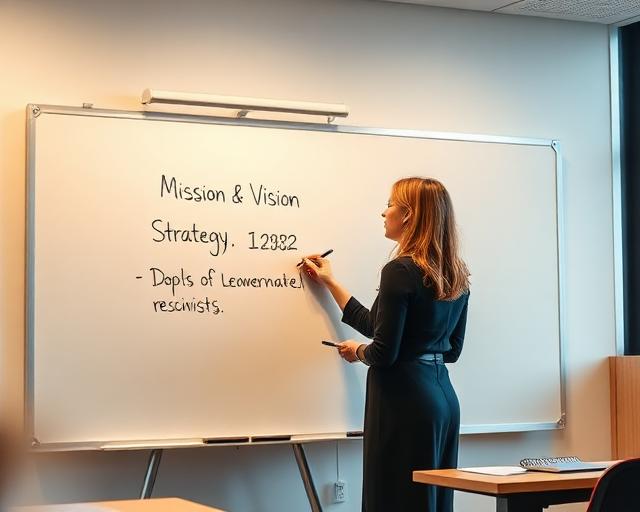 Mission & Vision
Strategy. 12982
- Dopls of Leowernatel
rescivists.